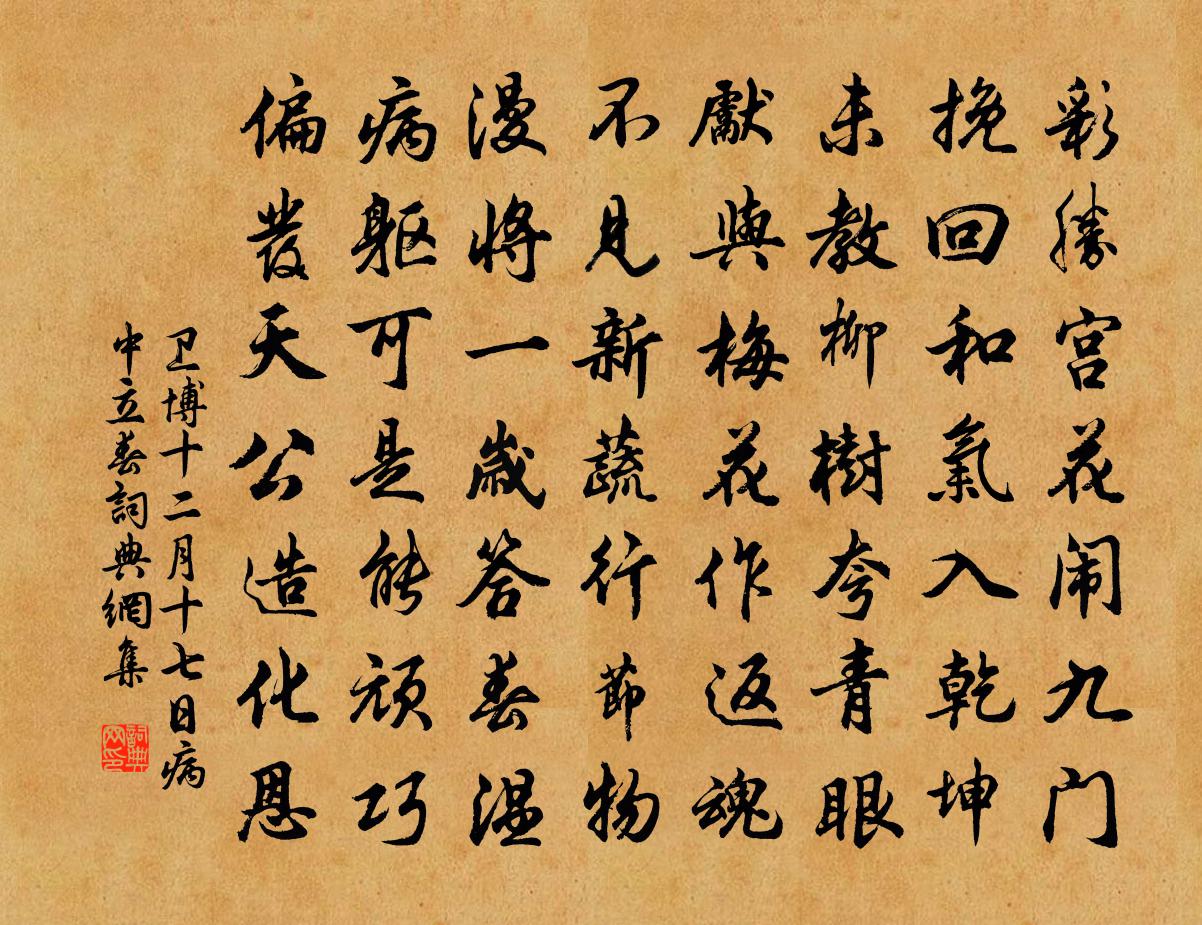 彩勝宫花闹九门
挽回和氣入乾坤
未教柳樹夸青眼
獻與梅花作返魂
不見新蔬行節物
漫將一歲答春温
病軀可是能頑巧
偏發天公造化恩
卫博十二月十七日病
中立春詞典網集
詞典網印